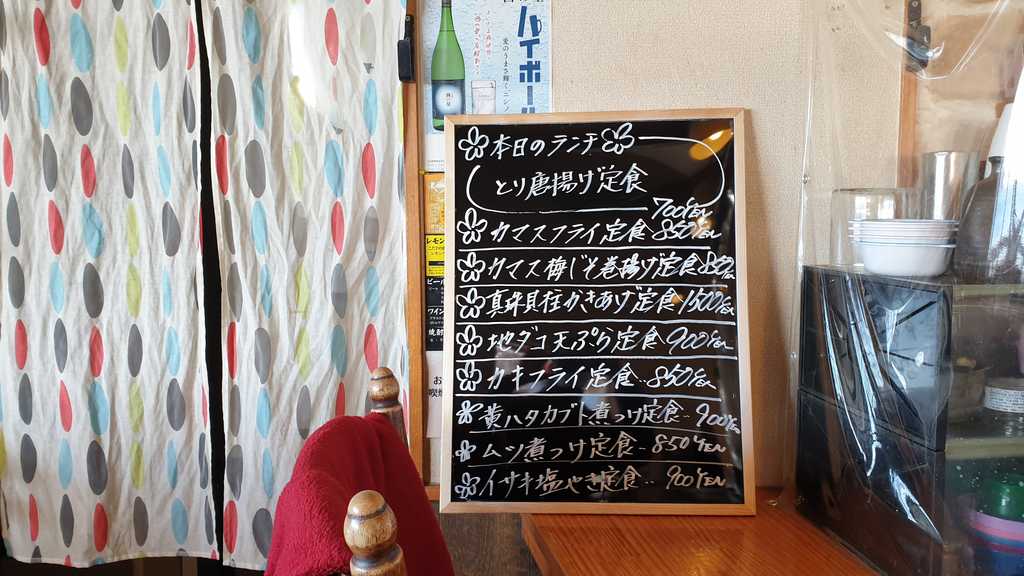 ハイボール
本日のランチ
とり唐揚げ定食
700YEN
カマスフライ定食 850YEN
カマス梅じそ巻揚げ定食 850
真珠貝柱かきあげ定食 1500YEN
地ダコ天ぷら定食 900YEN
カキフライ定食‥850YEN
黄ハタカブト煮つけ定食‥900YEN
ムツ煮つけ定食‥850YEN
イサキ塩やき定食‥900YEN
レモン
ワイン